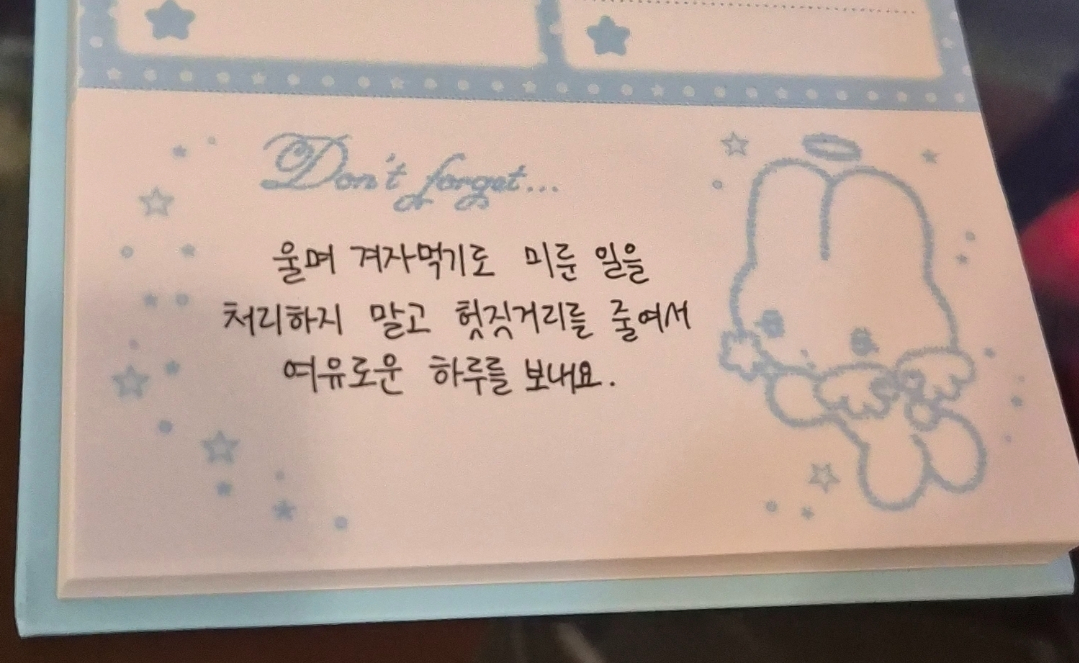 Don't forget...
울며 겨자먹기로 미룬 일을
처리하지 말고 헛짓거리를 줄여서
여유로운 하루를 보내요.